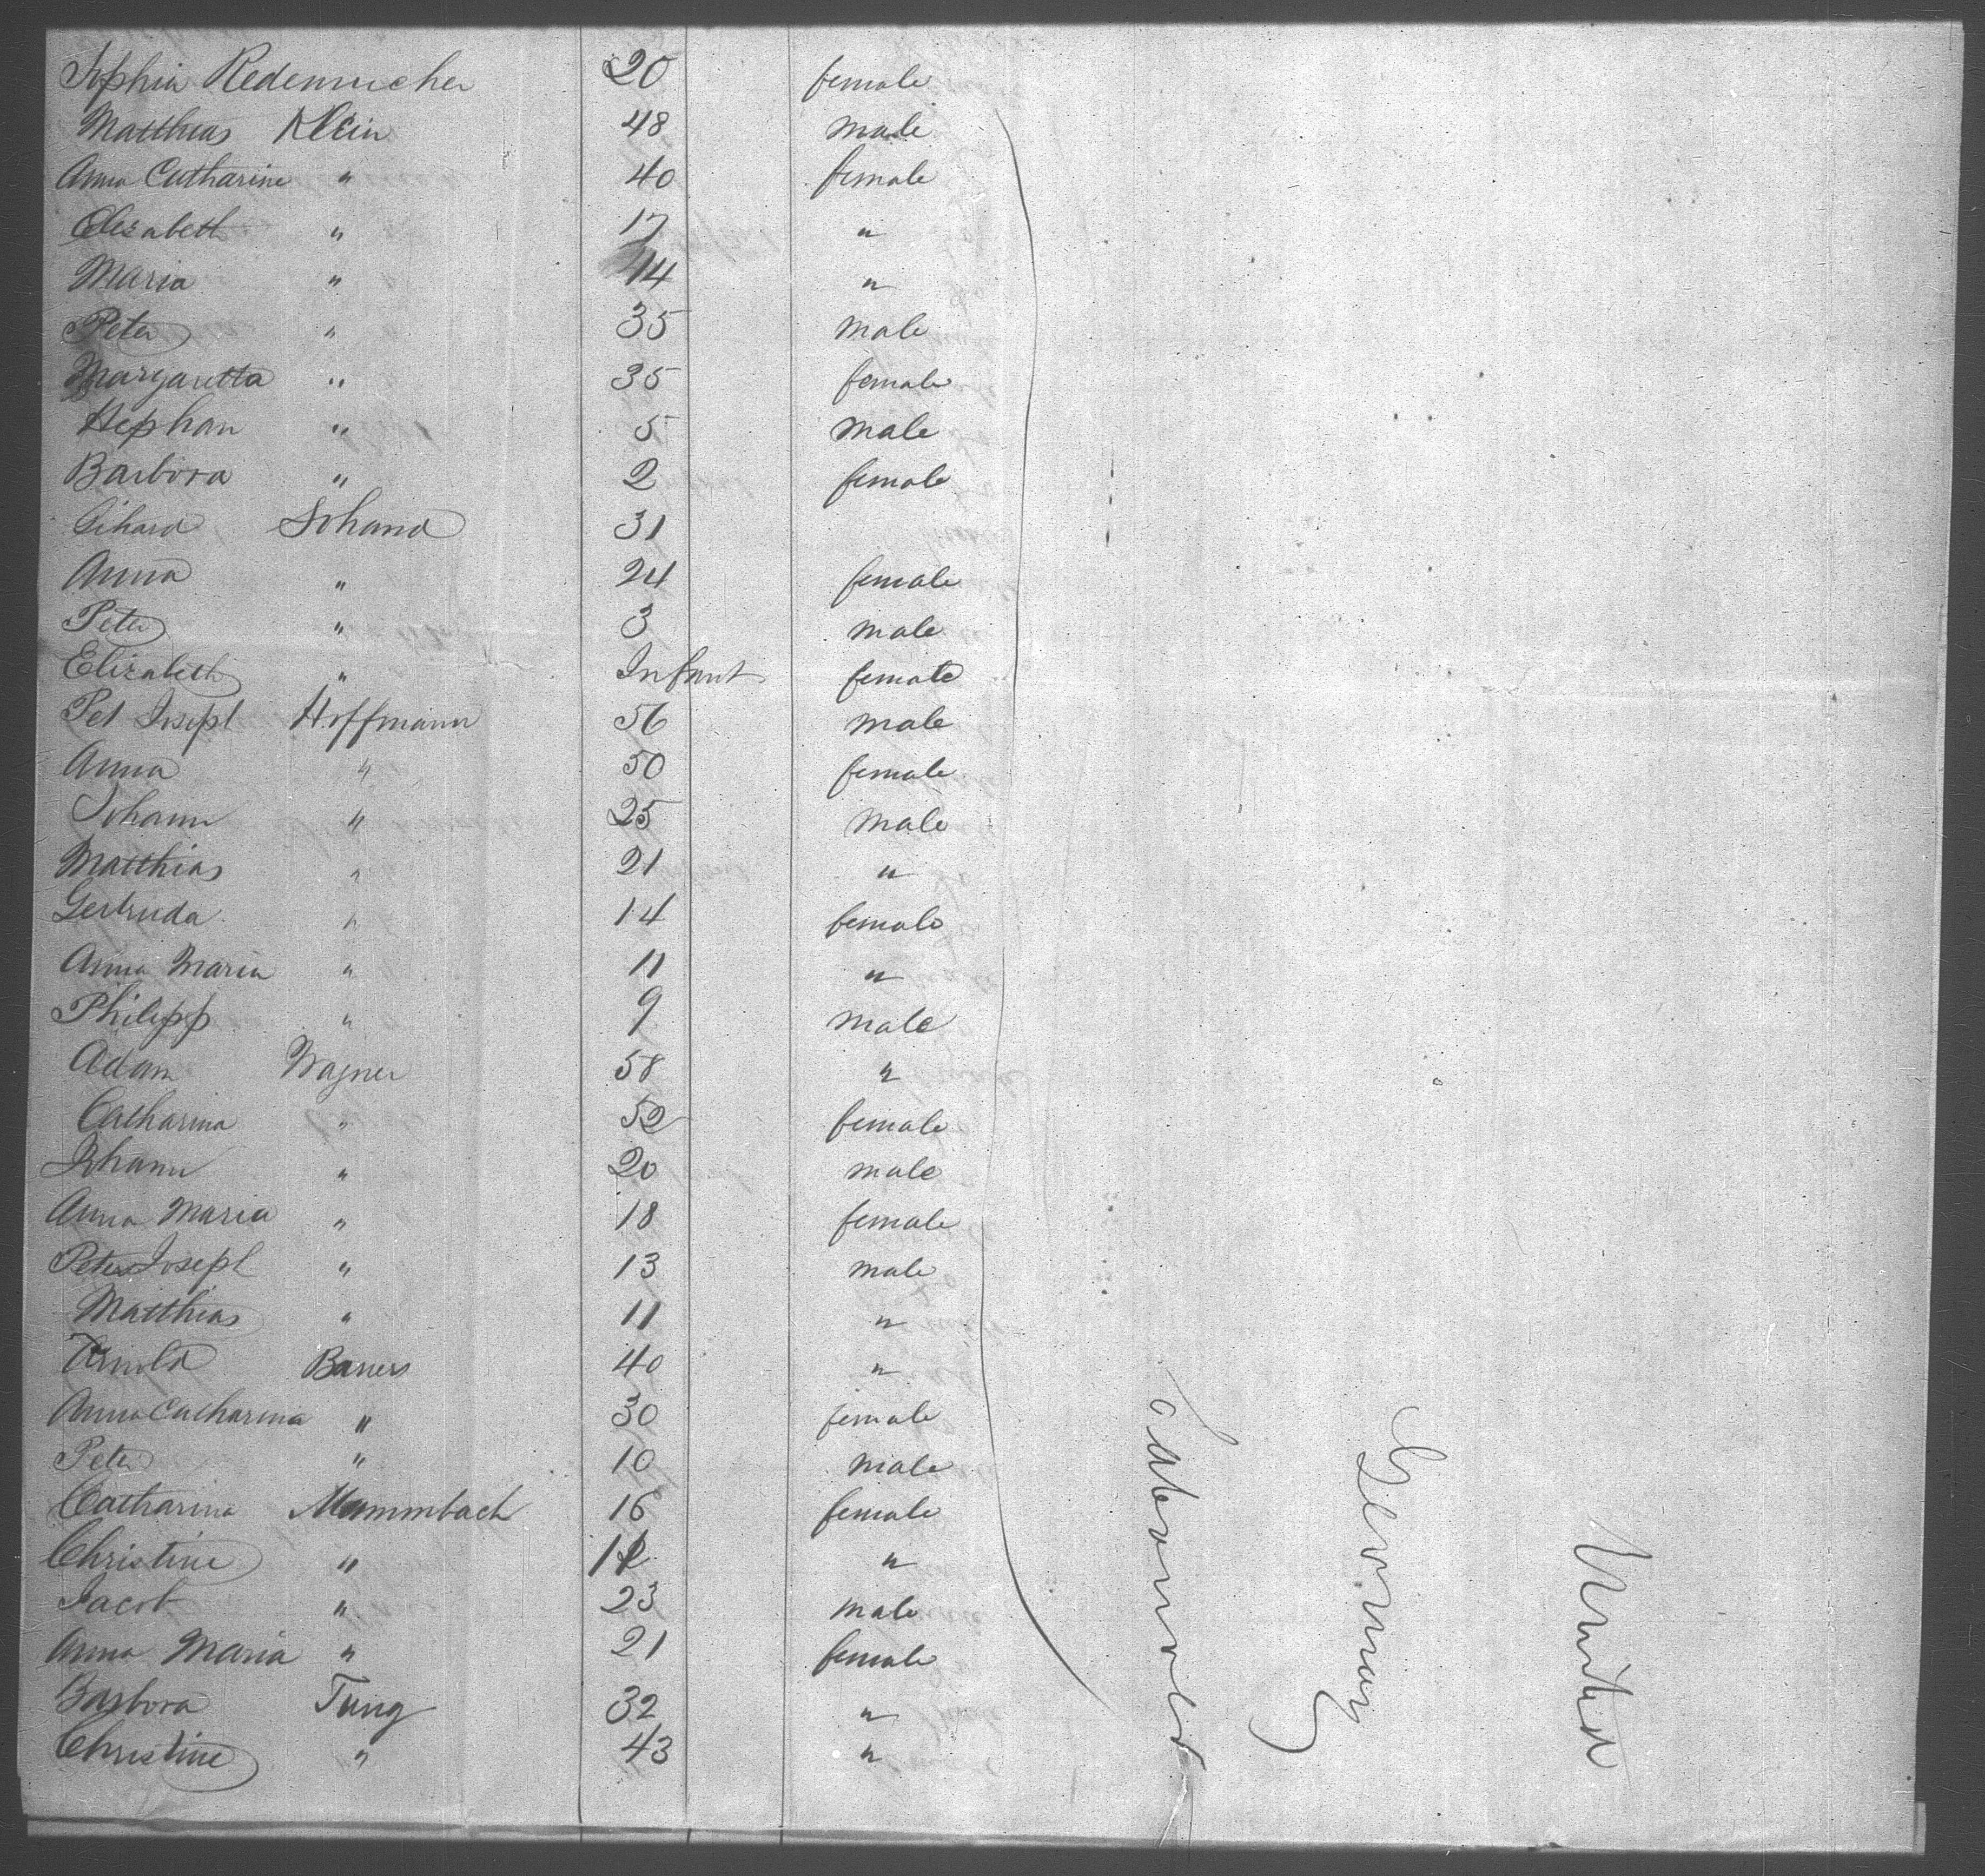 Sophia Redenucher 20 female
Matthias Klein 48 male
Anna Catharine " 40 female
Elisabeth " 17 "
Maria " 14 "
Peter " 35 male
Margaretta " 35 female
Stephan " 5 male
Barbora " 2 female
Gihard Johand 31
Anna " 24 female
Peter " 3 male
Elizabeth " Infant female
Pet Joseph Hoffmann 56 male
Anna " 50 female
Johann " 25 male
Matthias " 21 "
Gertruda " 14 female
Anna Maria " 11 "
Philipp " 9 male
Adam Wagner 58 "
Catharina " 52 female
Johann " 20 male
Anna Maria " 18 female
Peter Joseph " 13 male
Matthias " 11 "
Arnold Bauers 40 "
Anna Catharina " 30 female
Peter " 10 male
Catharina Mammbach 16 female
Christine " "
Jacob " 23 male
Anna Maria " 21 female
Barbora Tung 32 "
Christine " 43 "
Germany
United